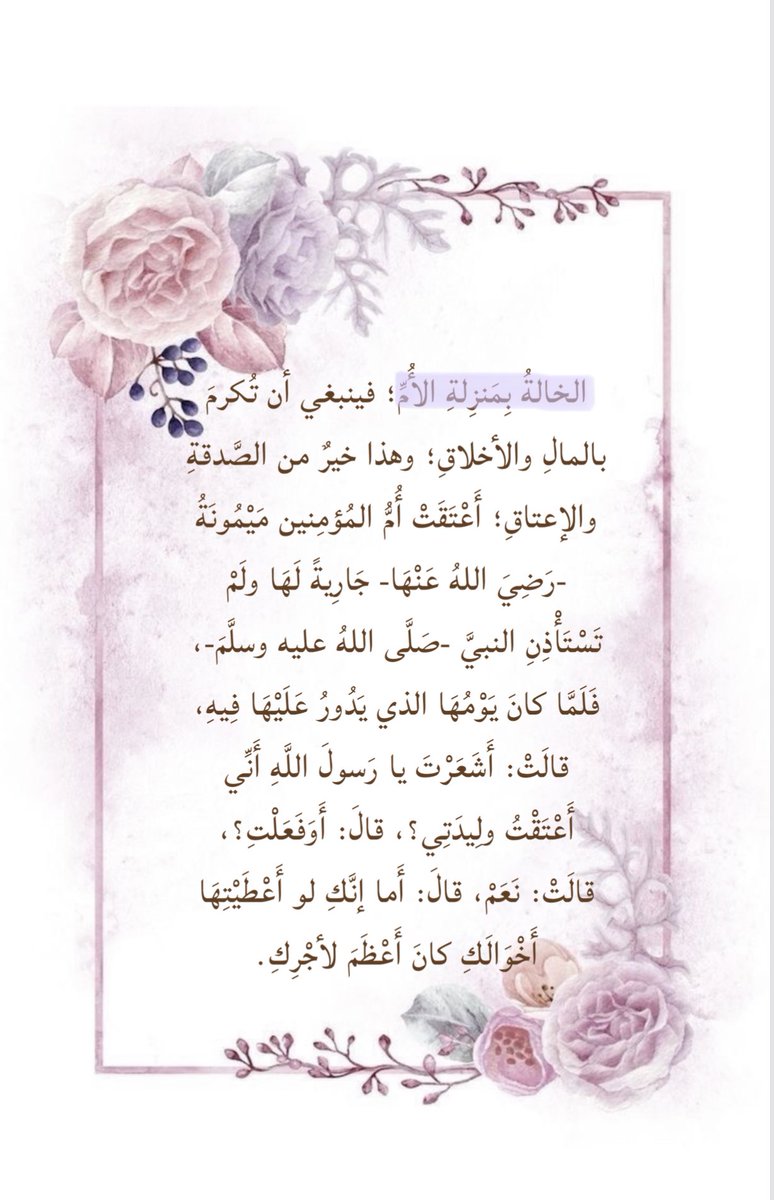 الخالةُ بِمَنزِلةِ الأُمِّ؛ فينبغي أن تُكرمَ
بالمالِ والأخلاقِ؛ وهذا خيرٌ من الصَّدقةِ
والإعتاقِ؛ أَعْتَقَتْ أُمُّ المُؤمِنين مَيْمُونَةُ
-رَضِيَ اللهُ عَنْهَا- جَارِيةً لَهَا ولَمْ
تَسْتَأْذِنِ النبيَّ -صَلَّى اللهُ عليه وسلَّمَ-،
فَلَمَّا كانَ يَوْمُهَا الذي يَدُورُ عَلَيْهَا فِيهِ،
قالَتْ: أَشَعَرْتَ يا رَسولَ اللَّهِ أَنِّي
أَعْتَقْتُ ولِيدَتِي؟، قالَ: أَوَفَعَلْتِ؟،
قالَتْ: نَعَمْ، قالَ: أَما إنَّكِ لو أَعْطَيْتِهَا
أَخْوَالَكِ كانَ أَعْظَمَ لأجْرِكِ.